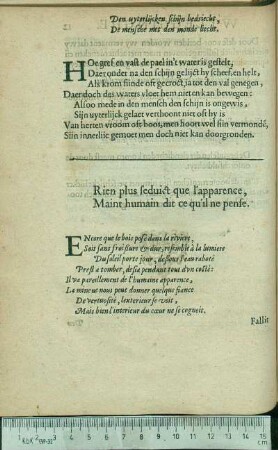 Den uyterlijcken schijn bedriecht,
De mensche met den monde liecht.
HOe gref en vast de pael in't water is gestelt,
Daer onder na den schijn gelijckt hy scheef en helt,
Als krom siinde oft gecroct, ja tot den val genegen,
Daer doch des waters vloet hem niet en kan bewegen:
Alsoo mede in den mensch den schijn is ongewis,
Siin uyterlijck gelaet verthoont niet oft hy is
Van herten vroom oft boos, men hoort wel siin vermond,
Siin innerlic gemoet men doch niet kan doorgronden.
Rien plus seduict que l'apparence,
Maint humain dit ce qu'il ne pense.
ENcore que le bois posé dans la riviere,
Soit sans fraissure en dur, resemble à la lumiere
Du soleil porte jour, dessous l'eau rabaté
Prest a tomber, desia pendant tous d'un costé:
Il va pareillement de l'humaine apparence,
La mine ne nous peut donner quelque fiance
De vertuosité, l'exterieur se voit,
Mais bien l'interieur du cœur ne se cognoit.
Fallit